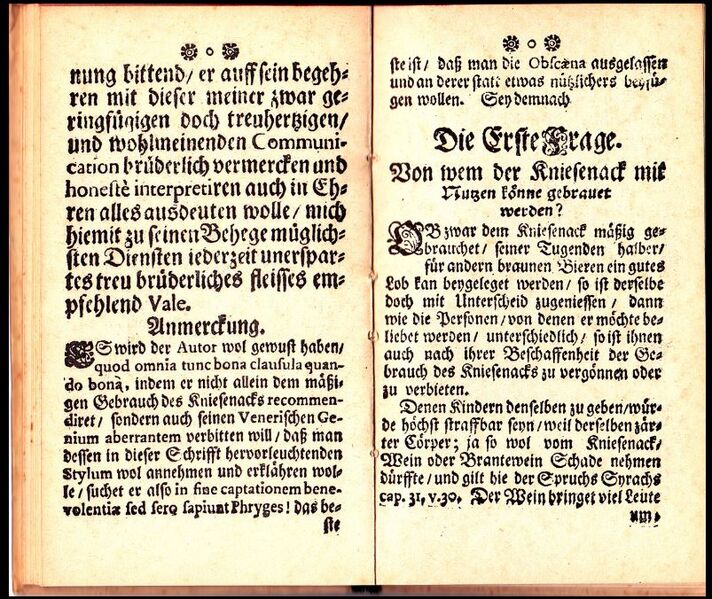 nung bittend/ er auff sein begeh⸗
ren mit dieser meiner zwar ge⸗
ringfügigen doch treuhertzigen/
und wohlmeinenden Communi-
cation brüderlich vermercken und
honestè interpretiren auch in Eh⸗
ren alles ausdeuten wolle/ mich
hiemit zu seinen Behege müglich⸗
sten Diensten iederzeit unerspar⸗
tes treu brüderliches fleisses em⸗
pfehlend Vale.
Anmerckung.
ES wird der Autor wol gewust haben/
quod omnia tunc bona clausula quan-
do bona, indem er nicht allein dem mäßi⸗
gen Gebrauch des Kniesenacks recommen-
diret/ sondern auch seinen Venerischen Ge-
nium aberrantem verbitten will/ daß man
dessen in dieser Schrifft hervorleuchtenden
Stylum wol annehmen und erklähren wol⸗
le/ suchet er also in fine captationem bene-
volentiæ sed serò sapiunt Phryges! das be⸗
ste
ste ist/ daß man die Obscæna ausgelassen
und an derer statt etwas nützlichers beyfü⸗
gen wollen. Sey demnach
Die Erste Frage.
Von wem der Kniesenack mit
Nutzen könne gebrauet
werden?
OB zwar dem Kniesenack mäßig ge⸗
brauchet/ seiner Tugenden halber/
für andern braunen Bieren ein gutes
Lob kan beygeleget werden/ so ist derselbe
doch mit Unterscheid zugeniessen/ dann
wie die Personen/ von denen er möchte be⸗
liebet werden/ unterschiedlich/ so ist ihnen
auch nach ihrer Beschaffenheit der Ge⸗
brauch des Kniesenacks zu vergönnen oder
zu verbieten.
Denen Kindern denselben zu geben/ wür⸗
de höchst straffbar seyn/ weil derselben zär⸗
ter Cörper; ja so wol vom Kniesenack/
Wein oder Brantewein Schade nehmen
dürffte/ und gilt hie der Spruchs Syrachs
cap. 31, v. 30. Der Wein bringet viel Leute
um,